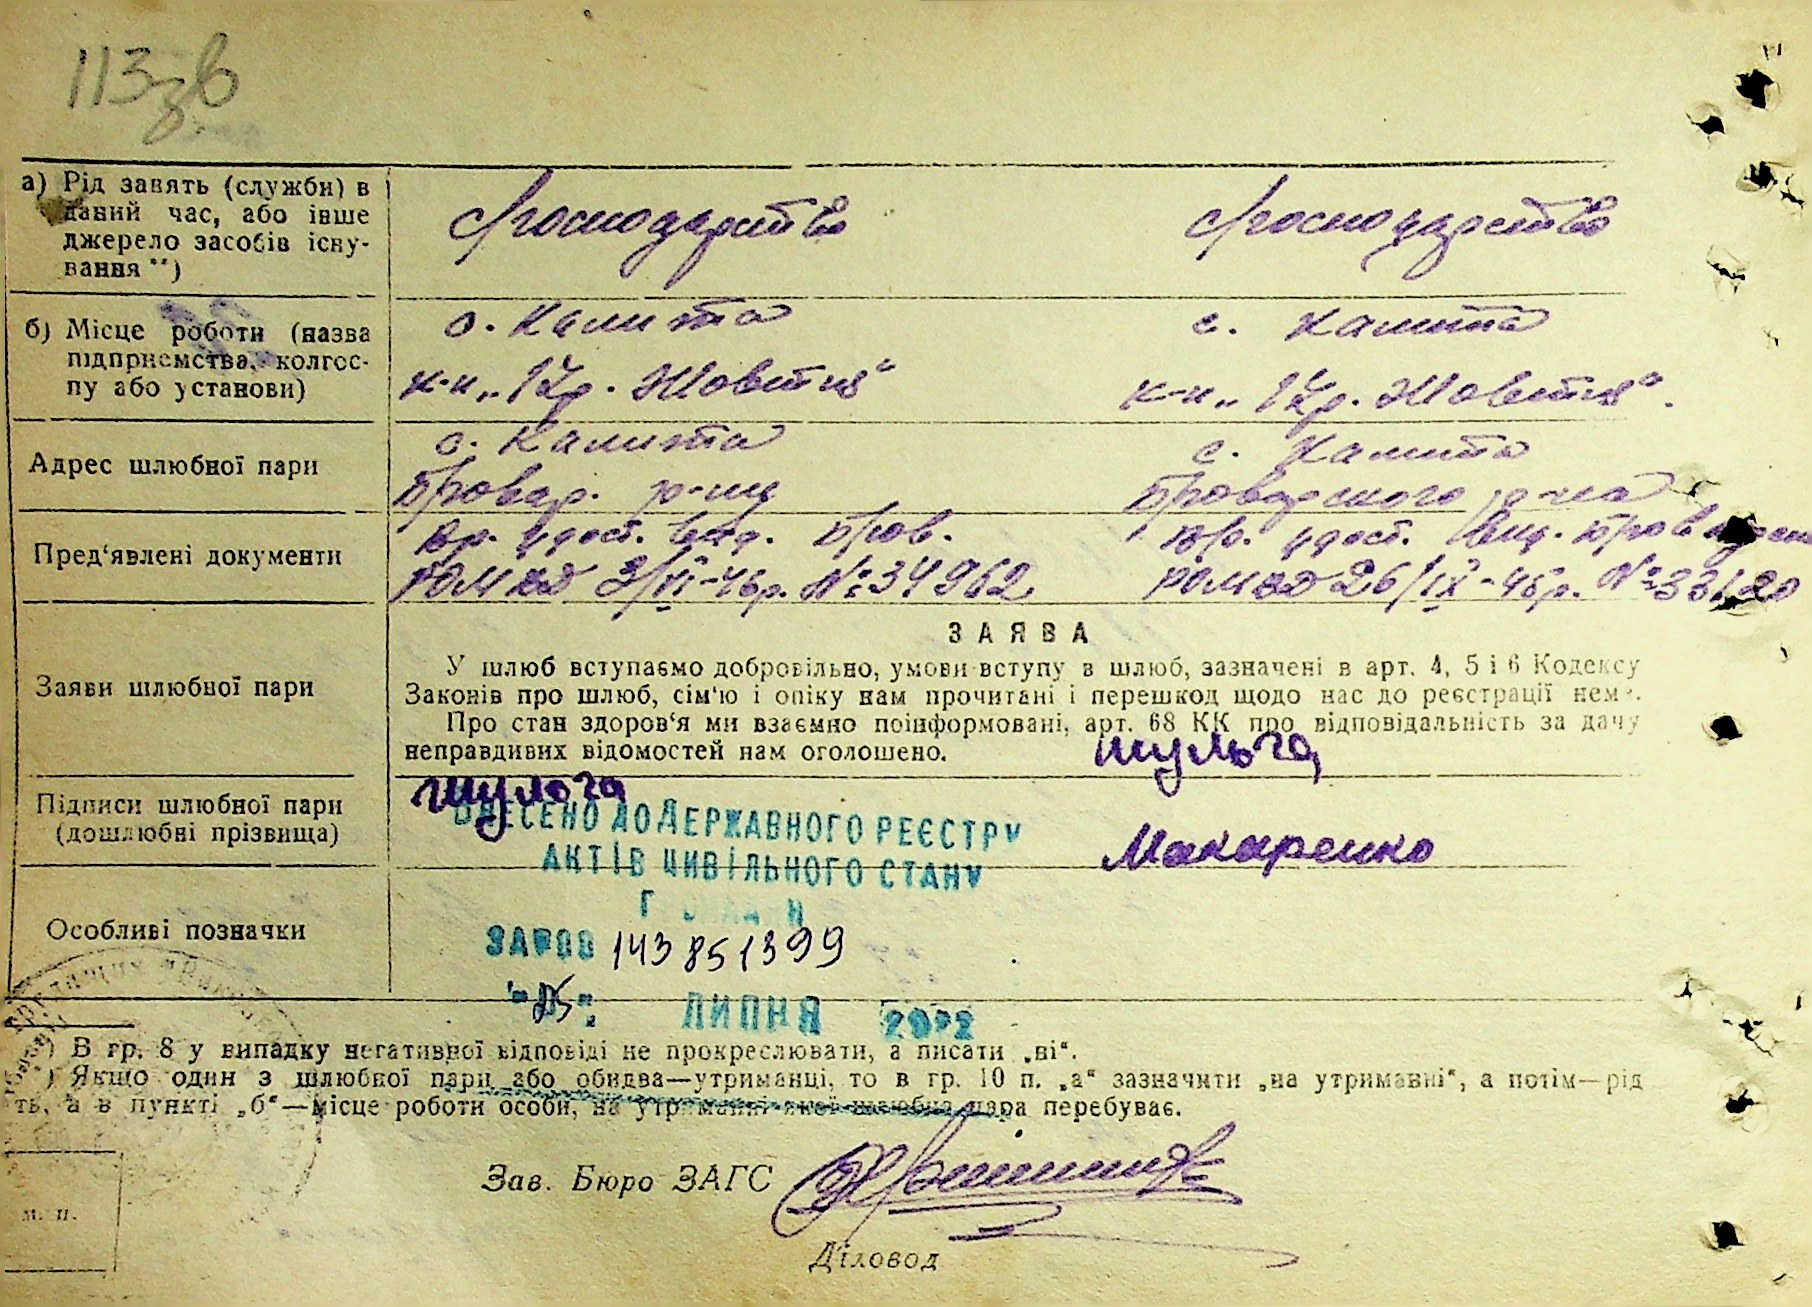 113зв
а) Рід занять (служби) в
даний час, або інше
джерело засобів існу-
вання **)
Господарство
Господарство
б) Місце роботи (назва
підприємства, колгос-
пу або установи)
с. Калита
к-п „17р. Жовтня“
с. Калита
к-п „17р. Жовтня“.
Адрес шлюбної пари
с. Калита
Бровар. р-ну
с. Калита
Броварского р-на
Пред'явлені документи
Вр. удост. вид. Бров.
РОМВД 3/VI-46р. №34962
Вр. удост. вид.
РОМВД 26/IX-45р. №33120
Заяви шлюбної пари
ЗАЯВА
У шлюб вступаємо добровільно, умови вступу в шлюб, зазначені в арт. 4, 5 і 6 Кодексу
Законів про шлюб, сім'ю і опіку нам прочитані і перешкод щодо нас до реєстрації нема.
Про стан здоров'я ми взаємно поінформовані, арт. 68 КК про відповідальність за дачу
неправдивих відомостей нам оголошено.
Шульга
Підписи шлюбної пари
(дошлюбні прізвища)
Шульга
Макаренко
ВНЕСЕНО ДО ДЕРЖАВНОГО РЕЄСТРУ
АКТІВ ЦИВІЛЬНОГО СТАНУ
ГРОМАДЯН
Особливі позначки
ЗА №00 143851399
"25" ЛИПНЯ 2022
*) В гр. 8 у випадку негативної відповіді не прокреслювати, а писати „ні“.
) Якщо один з шлюбної пари або обидва—утриманці, то в гр. 10 п. „а“ зазначити „на утриманні“, а потім—рід
ть, а в пункті „б“—місце роботи особи, на утриманні якої шлюбна пара перебуває.
Зав. Бюро ЗАГС
м. п.
Діловод